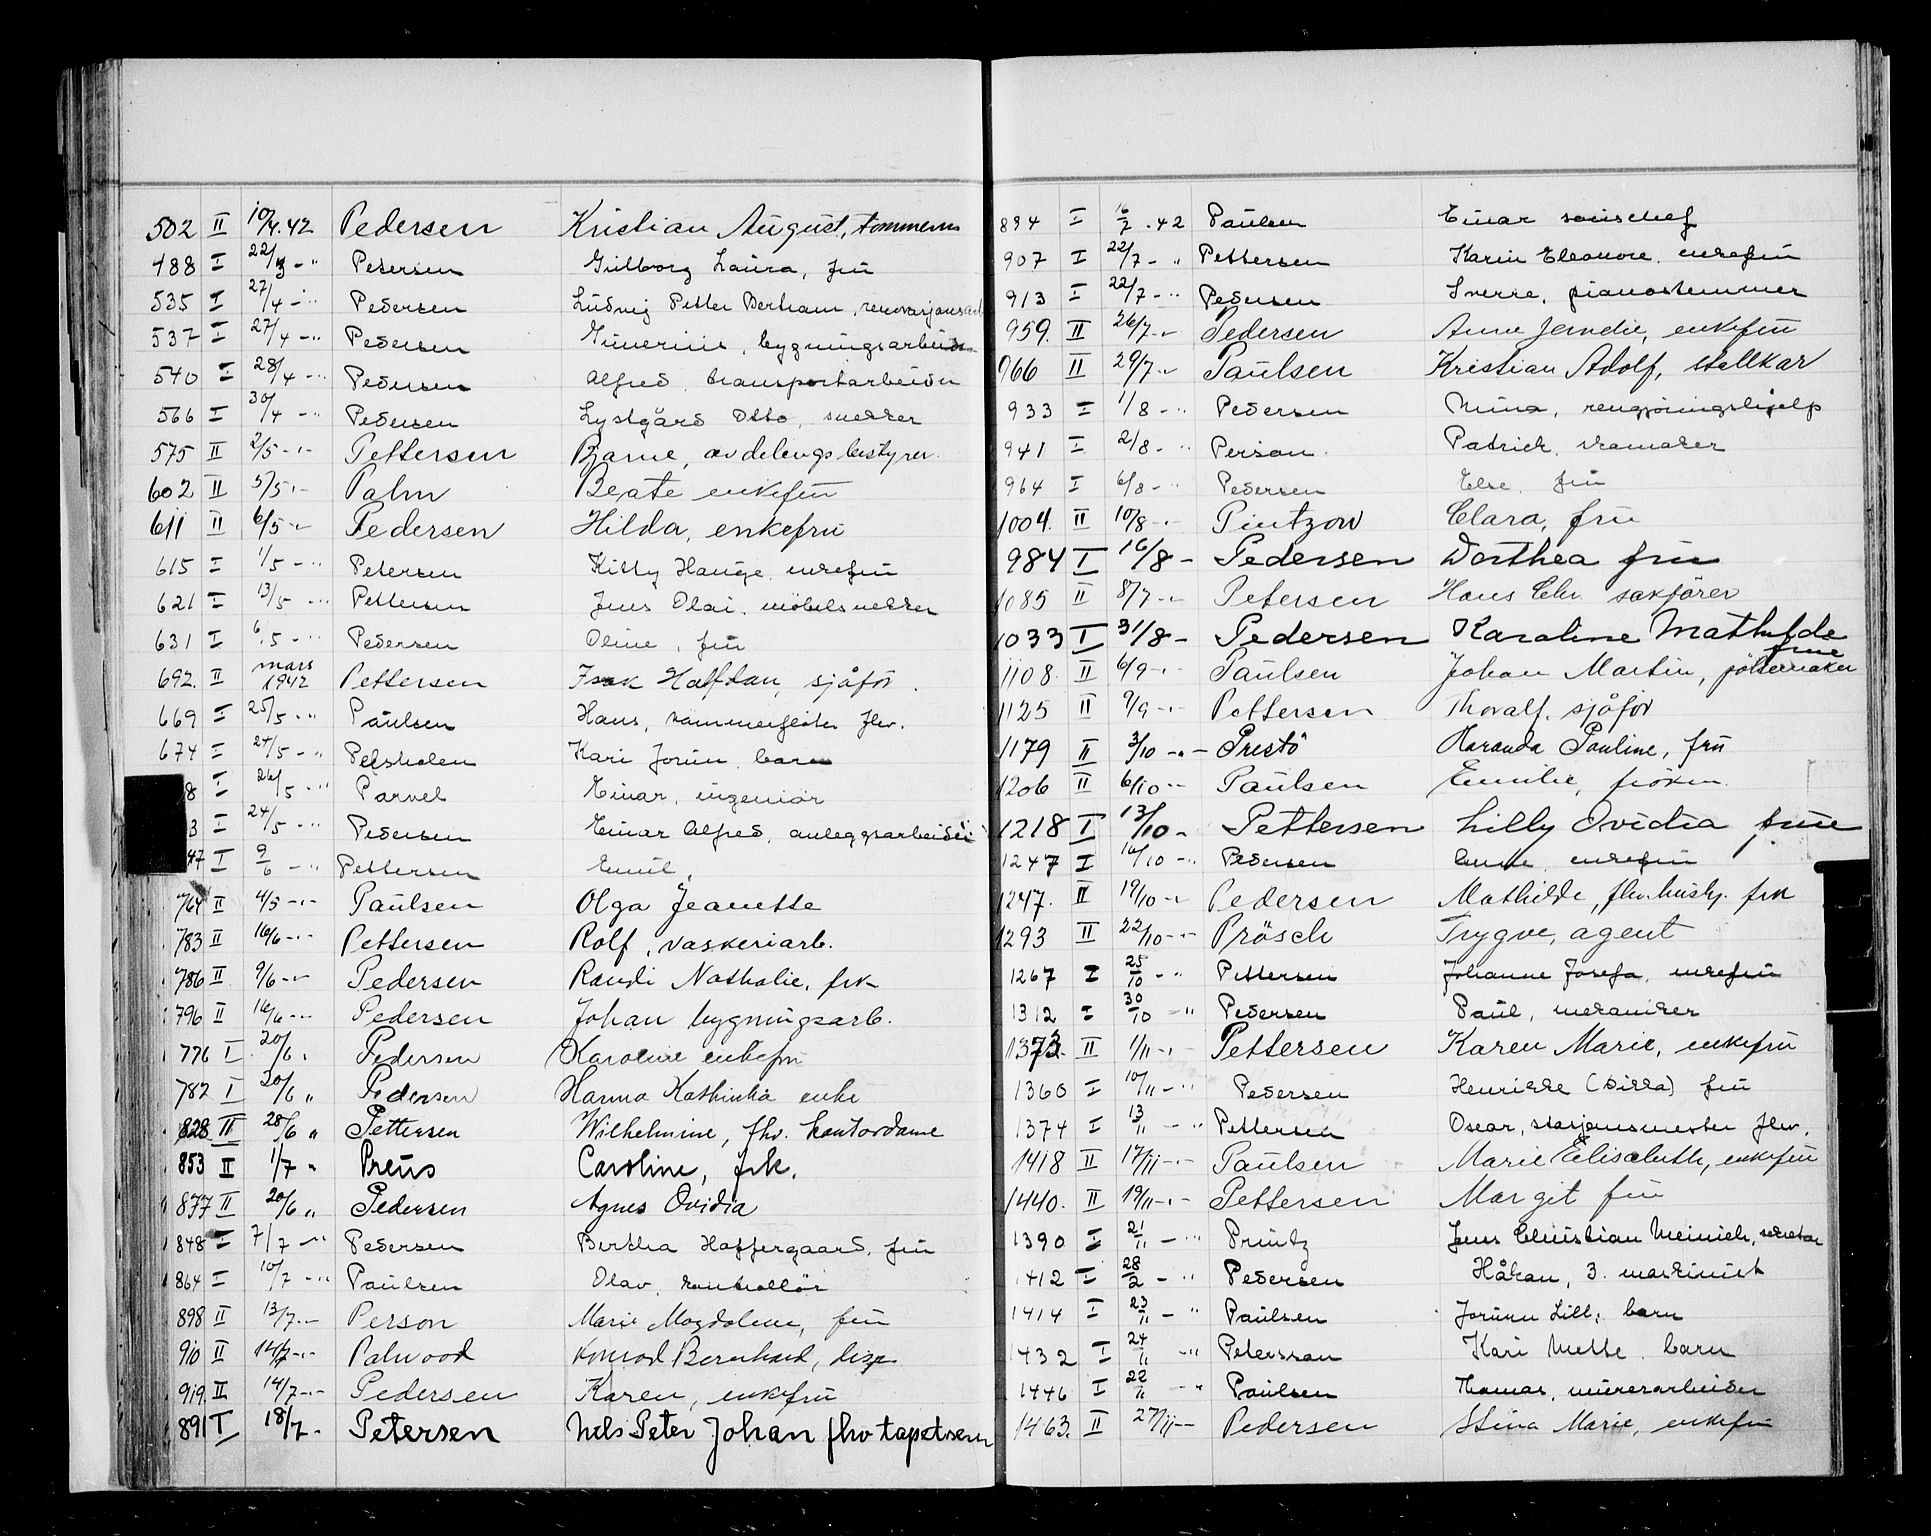 502 II 10/4.42 Pedersen Kristian August, tømmerm
488 I 22/3 -" Petersen Gulborg Laura, fru
535 I 27/4 -" Pedersen Ludvig Petter Bertram, renovasjonsarb
537 I 27/4 -" Pedersen bygningsarbeider
540 I 28/4 -" Pedersen Alfred, transportarbeider
566 I 30/4 -" Pedersen Lystgård Otto, snekker
575 II 2/5 -"- Pettersen Bjarne, avdelings bestyrer.
602 II 5/5 "- Palm Beate enkefru
611 II 6/5 -"- Pedersen Hilda, enkefru
615 I 1/5 -" Petersen Kitty Hauge, enkefru
621 I 13/5 -" Pettersen Jens Olai, møbelsnekker
631 I 6/5 -" Pedersen Oline, fru
692. II mars 1942 Pettersen Isak Halfdan, sjåfør.
669 I 25/5 -" Paulsen Hans, fhv.
674 I 24/5 -" Pefsholen Kari Jorun, barn
8 I 26/5 -" Parvel Einar, ingeniør
3 I 24/5 -" Pedersen Einar Alfred, anleggsarbeider
47 I 9/6 -" Pettersen Emil,
764 II 4/5 -"- Paulsen Olga Jeanette
783 II 16/6 -"- Pettersen Rolf, vaskeriarb.
786 II 9/6 -"- Pedersen Randi Nathalie, frk
796 II 16/6 -"- Pedersen Johan bygningsarb.
776 I 20/6 " Pedersen Karoline enkefru
782 I 20/6 " Pedersen Hanna Kathinka enke
828 II 28/6 " Pettersen Wilhelmine, fhv. kontordame
853 II 1/7 " Preus Caroline, frk.
877 II 20/6 " Pedersen Agnes Ovidia
848 I 7/7 -" Pedersen Bertha Haffergaard, fru
864 I 10/7 -" Paulsen Olav, kontrollør
898 II 13/7 -"- Person Marie Magdalene, fru
910 II 14/7 -"- Palwood Konrad Bernhard, disp
919. II 14/7 -"- Pedersen Karen, enkefru
891 I 18/7 - Petersen Nels Peter Johan fhv tapetserer
894 I 16/7 .42 Paulsen Einar
907 I 22/7 -" Pettersen Karin Eleonore, enkefru
913 I 22/7 -" Pedersen Sverre, pianostemmer
959. II 26/7 -"- Pedersen Anne Jerndie, enkefru
966 II 29/7 -"- Paulsen Kristian Adolf, stallkar
933 I 1/8 -" Pedersen Mina, rengjøringshjelp
941 I 2/8 -" Persan Patrick, kramaker
964 I 6/8 -" Pedersen Else, fru
1004. II 10/8 -"- Pintzow Clara, fru
984 I 16/8 - Pedersen Dorthea fru
1085 II 8/7 -"- Petersen Hans Chr. sakfører
1033 I 31/8 - Pedersen Karoline Mathilde
frue
1108. II 6/9 -"- Paulsen Johan Martin, pølsemaker
1125 II 9/9 -"- Pettersen Thoralf, sjåfør
1179 II 3/10 -"- Prestö Haranda Pauline, fru
1206 II 6/10 -"- Paulsen Emilie, frøken
1218 I 13/10 - Pettersen Lilly Ovidia frue
1247 I 16/10 -" Pedersen enkefru
1247. II 19/10 -"- Pedersen Mathilde, fhv. hush. frk
1293 II 22/10 -"- Prösch Trygve, agent
1267 I 25/10 -" Pettersen Johanne Josefa, enkefru
1312 I 30/10 -" Pedersen Paul, mekaniker
1373. II 1/11 -"- Pettersen Karen Marie, enkefru
1360 I 10/11 -" Pedersen Henrikke (Kikka) fru
1374 I 13/11 -" Pettersen Oscar, stasjonsmester fhv.
1418 II 17/11 -"- Paulsen Marie Elisabeth, enkefru
1440. II 19/11 -"- Pettersen Margit fru
1390 I 21/11 -" Printz Jens Christian Meinich, sekretær
1412 I 28/2 -" Pedersen Håkan, 3. maskinist
1414 I 23/11 -" Paulsen Jorunn Lill, barn
1432 I 24/11 -" Peterssan Kari Mette, barn
1446 I 22/11 -" Paulsen murerarbeider
1463. II 27/11 -"- Pedersen Stina Marie, enkefru